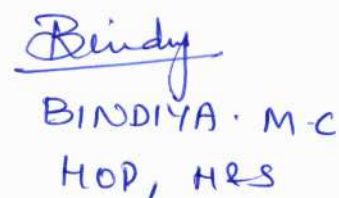 Bindy
BINDIYA. M-C
HOD, H&S